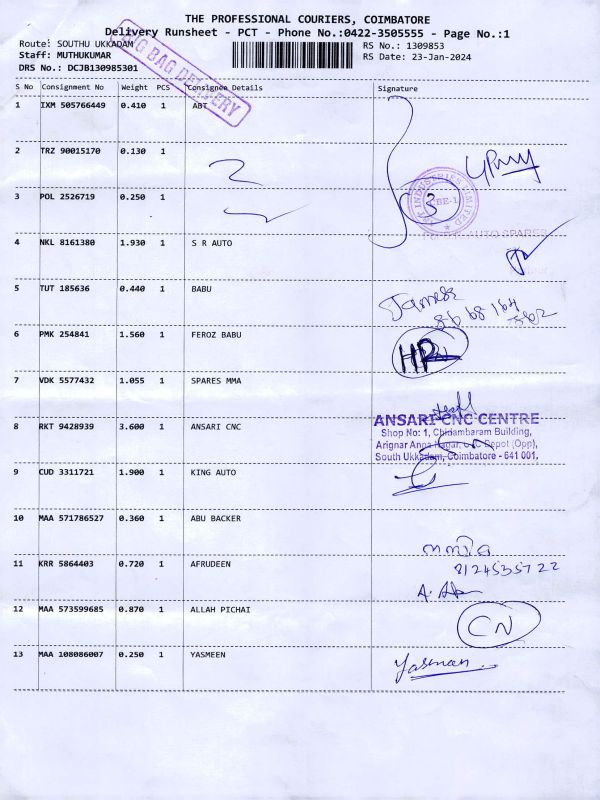 THE PROFESSIONAL COURIERS, COIMBATORE
Delivery Runsheet - PCT - Phone No.:0422-3505555 - Page No.:1
Route: SOUTHU UKKADAM
RS No.: 1309853
Staff: MUTHUKUMAR
RS Date: 23-Jan-2024
DRS No.: DCJB130985301
BAG DELIVERY
S No Consignment No Weight PCS Consignee Details Signature
1 IXM 505766449 0.410 1 ABT
2 TRZ 90015170 0.130 1
3 POL 2526719 0.250 1
INDUSTRIES LIMITED
3
4 NKL 8161380 1.930 1 S R AUTO
AUTO SPARES
5 TUT 185636 0.440 1 BABU
6 PMK 254841 1.560 1 FEROZ BABU
7 VDK 5577432 1.055 1 SPARES MMA
8 RKT 9428939 3.600 1 ANSARI CNC
ANSARI CNC CENTRE
Shop No: 1, Chidambaram Building,
Arignar Anna Nagar, Depot (Opp),
South Ukkadam, Coimbatore - 641 001.
9 CUD 3311721 1.900 1 KING AUTO
10 MAA 571786527 0.360 1 ABU BACKER
11 KRR 5864403 0.720 1 AFRUDEEN
8124535722
12 MAA 573599685 0.870 1 ALLAH PICHAI
CN
13 MAA 108086007 0.250 1 YASMEEN
Yasmeen